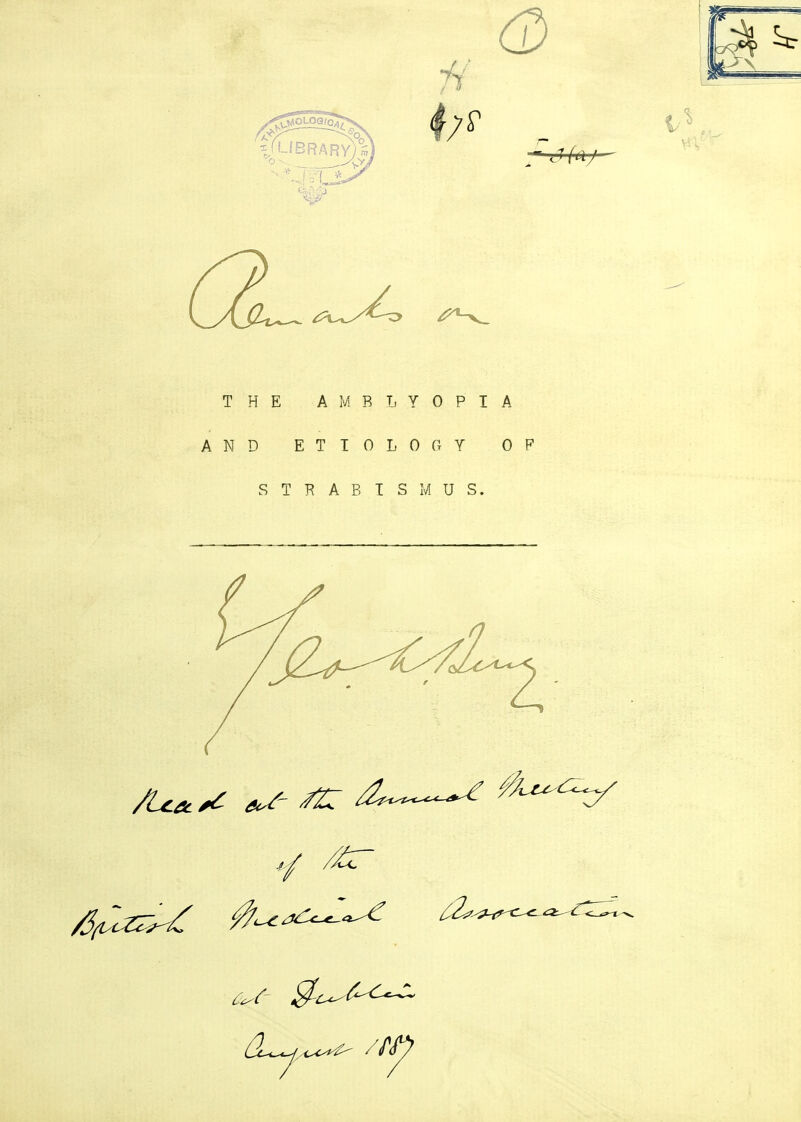 1
H
78
H
G78
E3(a)
OPHTHALMOLOGICAL SOCIETY
LIBRARY
Remarks on
THE AMBLYOPIA
AND ETIOLOGY OF
STRABISMUS.
Geo. A. Berry.
Read at the Annual Meeting
of the
British Medical Association
at Dublin
August 1887